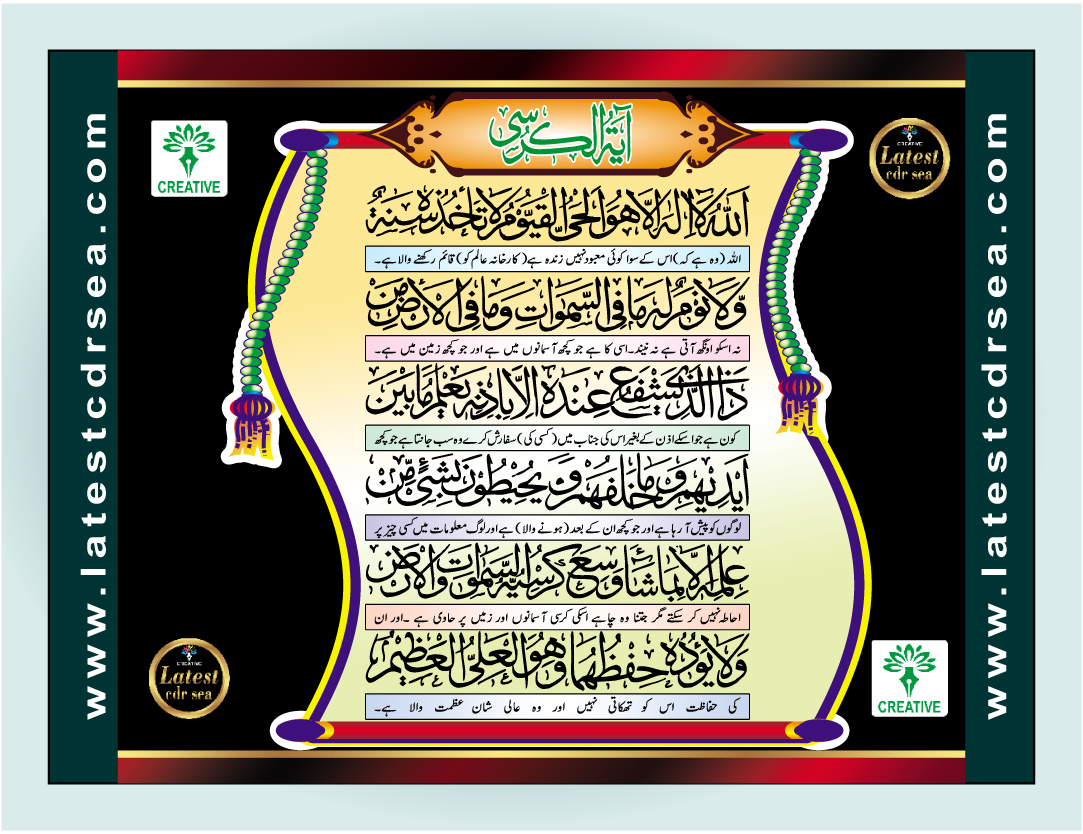 آیة الکرسی
CREATIVE
CREATIVE
Latest
cdr sea
www.latestcdrsea.com
www.latestcdrsea.com
اَللّٰهُ لَا اِلٰهَ اِلَّا هُوَ اَلْحَیُّ الْقَیُّوْمُ لَا تَاْخُذُهٗ سِنَةٌ
اللہ (وہ ہے کہ) اس کے سوا کوئی معبود نہیں زندہ ہے (کارخانہ عالم کو) قائم رکھنے والا ہے۔
وَّلَا نَوْمٌ لَهٗ مَا فِی السَّمٰوَاتِ وَمَا فِی الْاَرْضِ مَنْ
نہ اسکو اونگھ آتی ہے نہ نیند۔ اسی کا ہے جو کچھ آسمانوں میں ہے اور جو کچھ زمین میں ہے۔
ذَا الَّذِیْ یَشْفَعُ عِنْدَهٗ اِلَّا بِاِذْنِهٖ یَعْلَمُ مَا بَیْنَ
کون ہے جو اسکے اذن کے بغیر اس کی جناب میں (کسی کی) سفارش کرے وہ سب جانتا ہے جو کچھ
اَیْدِیْهِمْ وَ مَا خَلْفَهُمْ وَ یُحِیْطُوْنَ بِشَیْئٍ مِّنْ
لوگوں کو پیش آ رہا ہے اور جو کچھ ان کے بعد (ہونے والا) ہے اور لوگ معلومات میں کسی چیز پر
عِلْمِهٖ اِلَّا بِمَا شَآءَ وَسِعَ کُرْسِیُّهُ السَّمٰوَاتِ وَالْاَرْضَ
احاطہ نہیں کر سکتے مگر جتنا وہ چاہے اسکی کرسی آسمانوں اور زمیں پر حاوی ہے ۔اور ان
وَلَا یَؤُدُهٗ حِفْظُهُمَا وَهُوَ الْعَلِیُّ الْعَظِیْمُ
کی حفاظت اس کو تھکاتی نہیں اور وہ عالی شان عظمت والا ہے۔
CREATIVE
Latest
cdr sea
CREATIVE